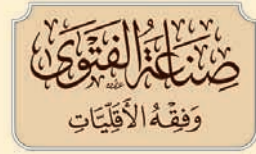 صِنَاعَةُ الْفَتْوَى
وَفِقْهُ الْأَقَلِّيَّاتِ